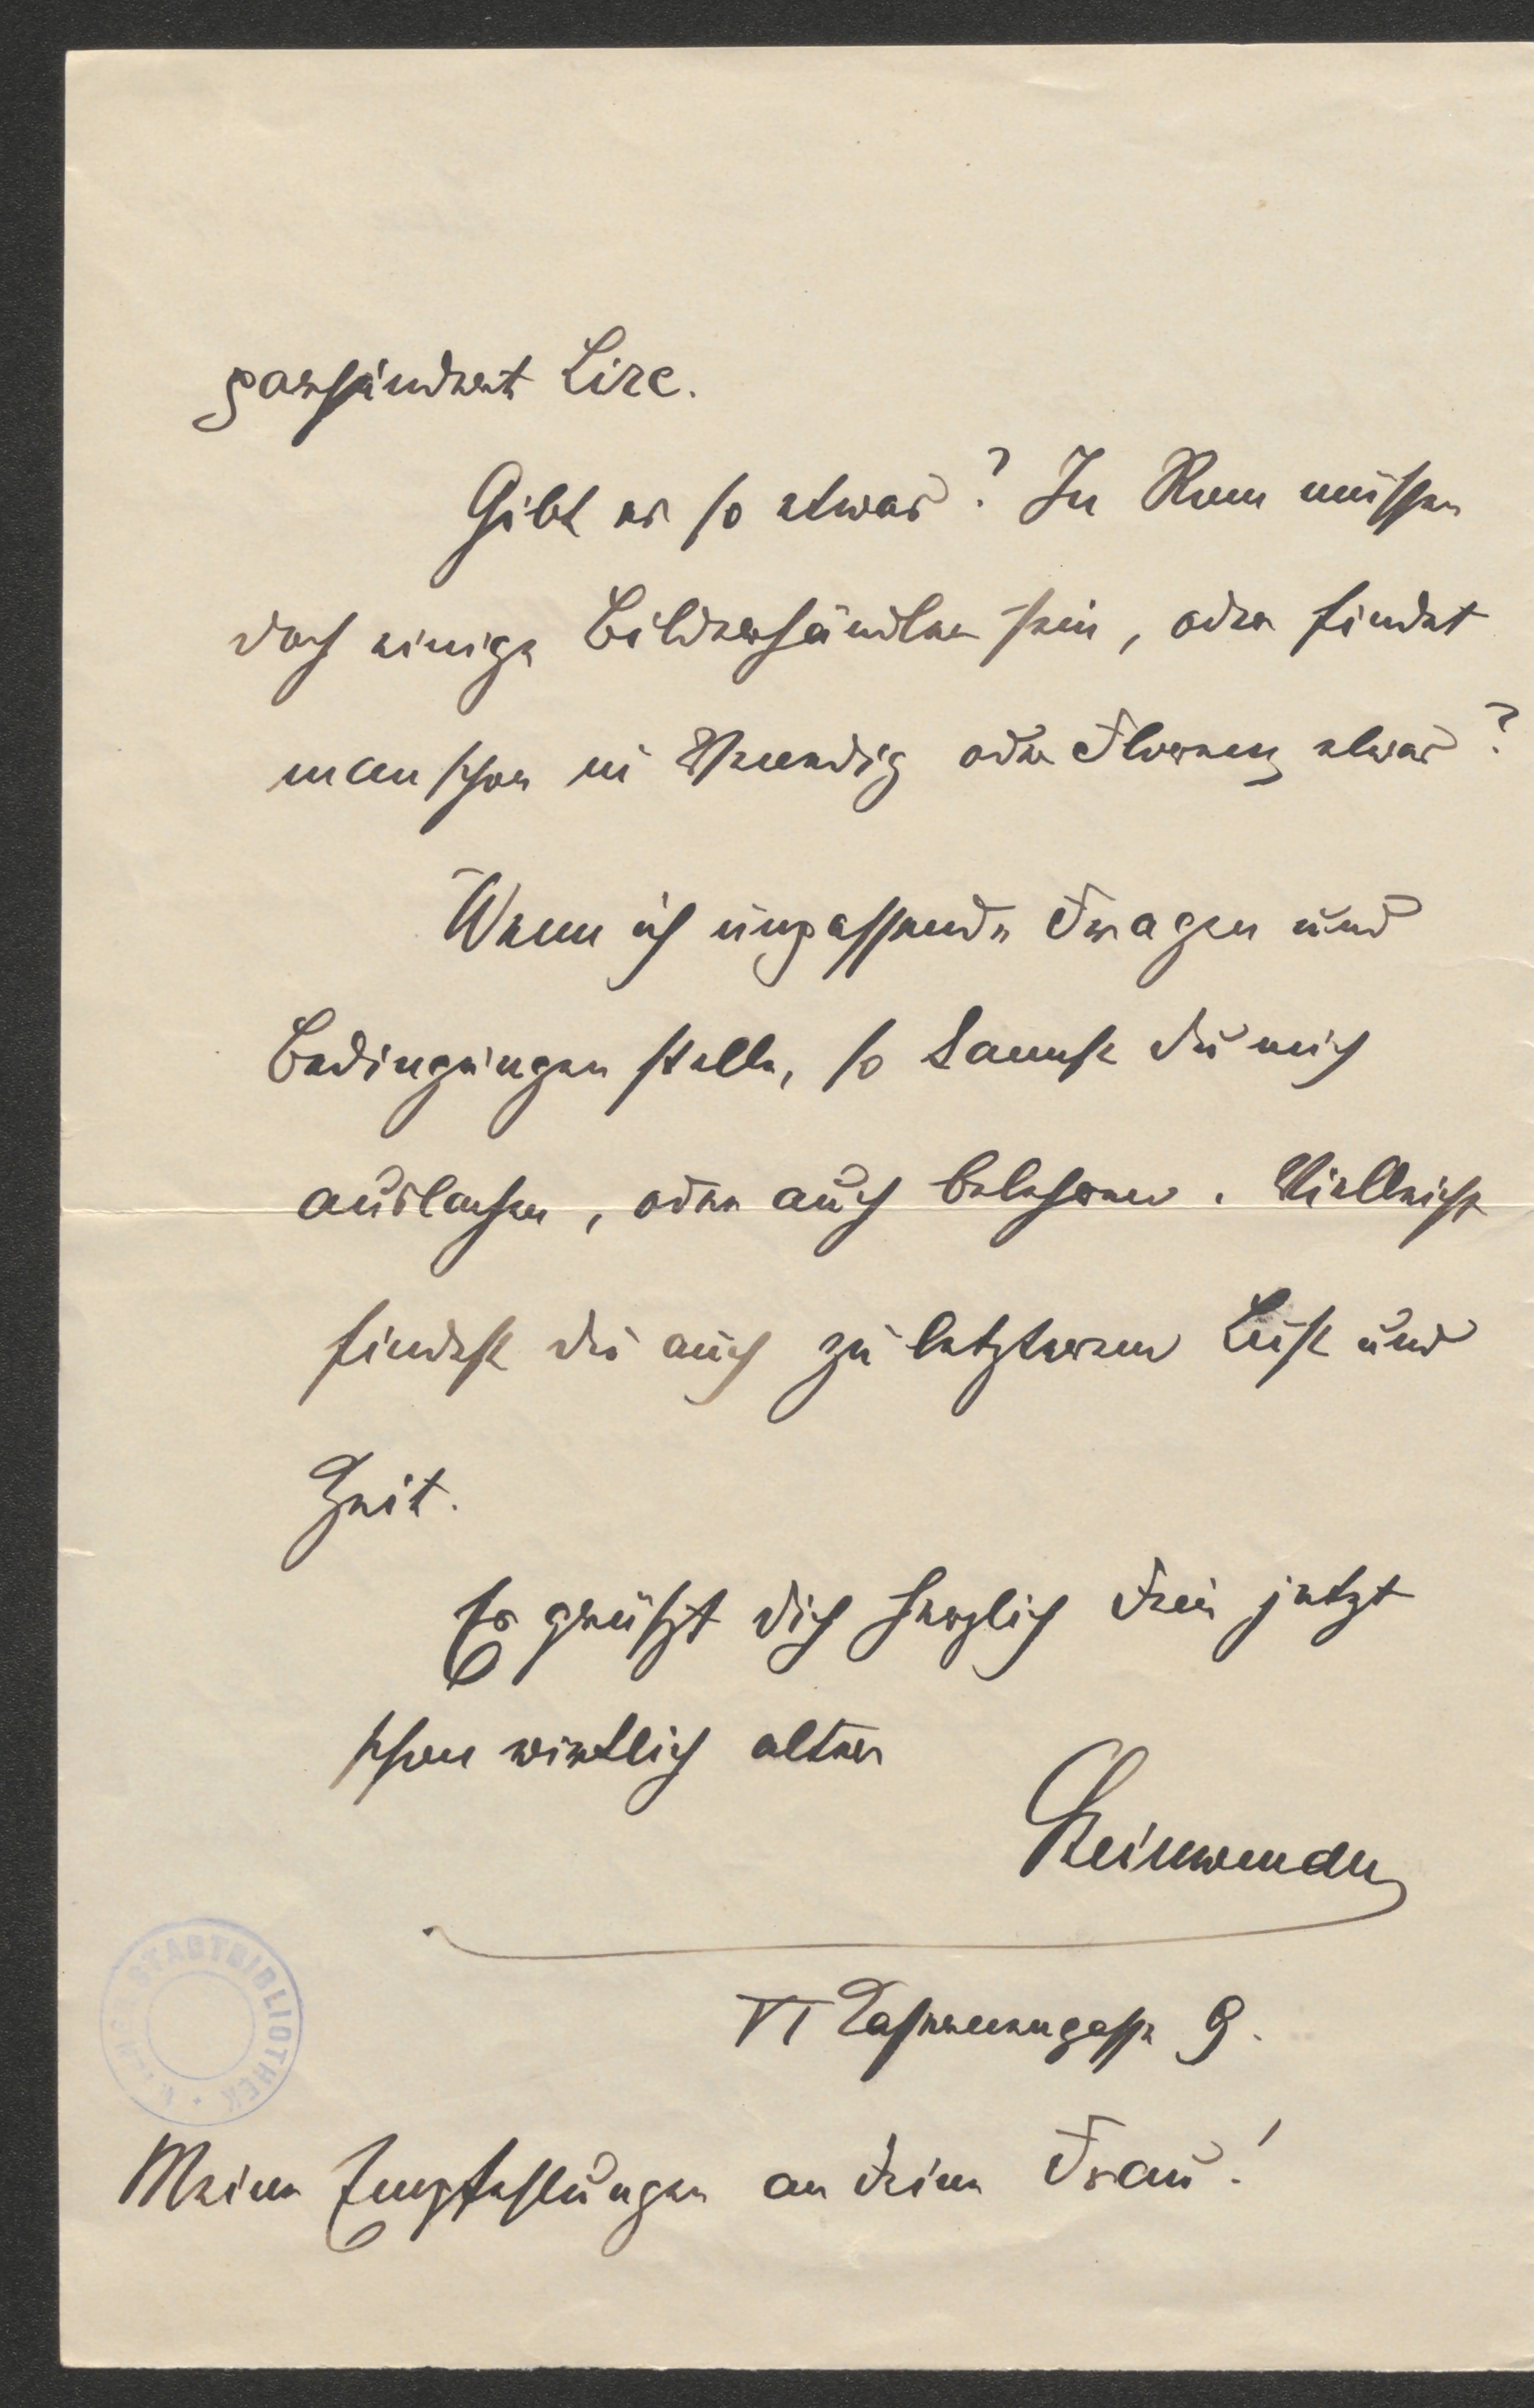 paarhundert Lire.
Gibt es so etwas? In Rom müssen
doch einige Bilderhändler sein, oder findet
man schon in Venedig oder Florenz etwas?
Wenn ich unpassende Fragen und
Bedingungen stelle, so kannst du mich
auslachen, oder auch belehren. Vielleicht
findest du auch zu letzterem Lust und
Zeit.
Es grüßt dich herzlich dein jetzt
schon wirklich alter
Steinwender
VI Kasernengasse 9.
Meine Empfehlungen an deine Frau!
WIENER STADTBIBLIOTHEK